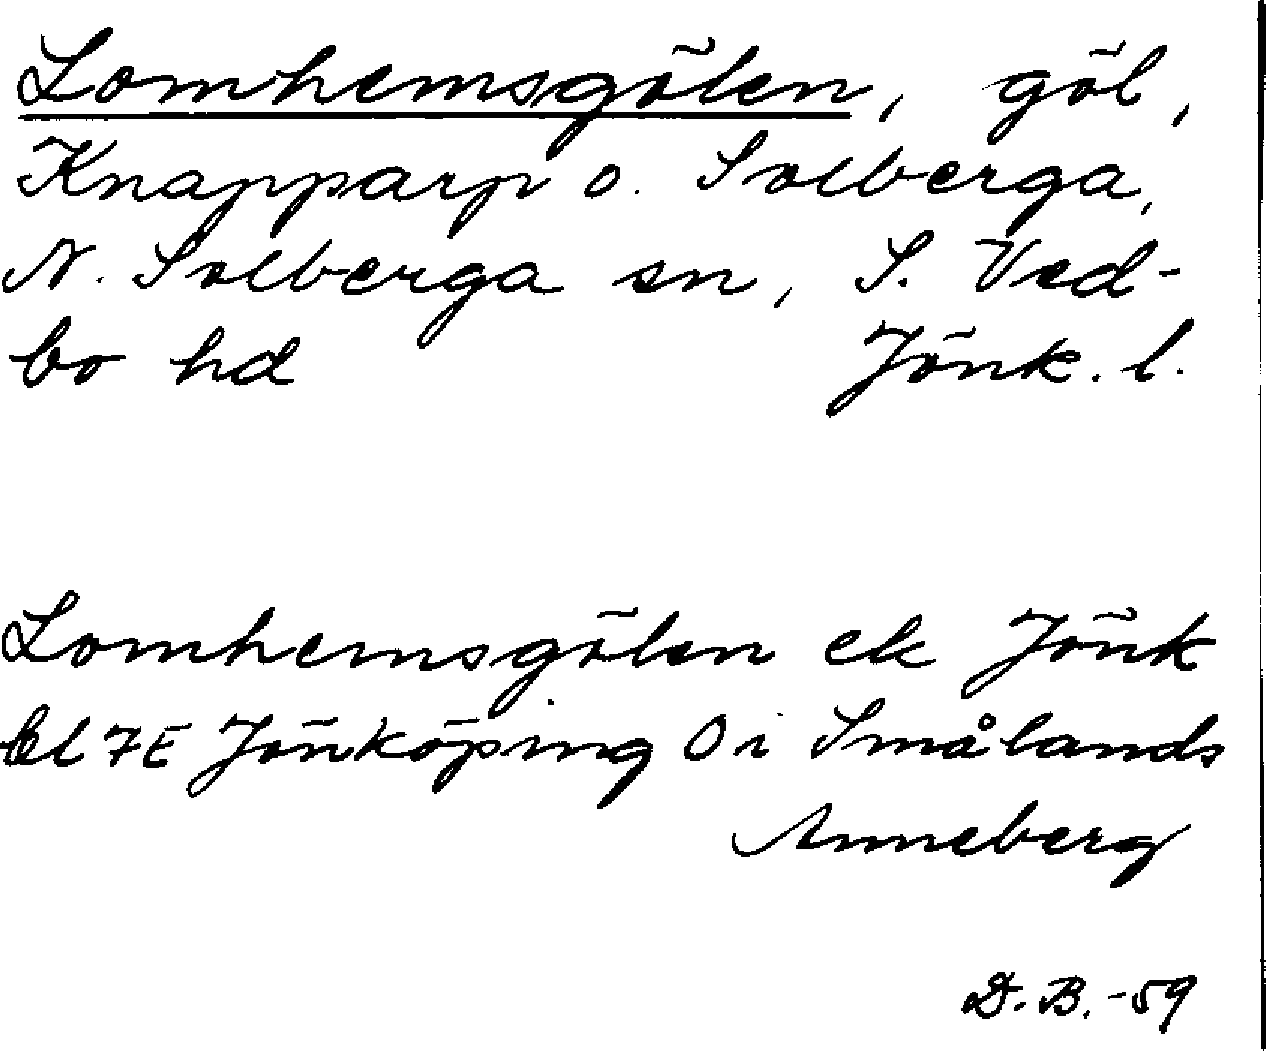 Lomhemsgölen, göl,
Knapparp o. Solberga,
N. Solberga sn, S. Ved-
bo hd Jönk. l.
Lomhemsgölen ek Jönk
bl 7E Jönköping O i Smålands
Anneberg
D.B. -59